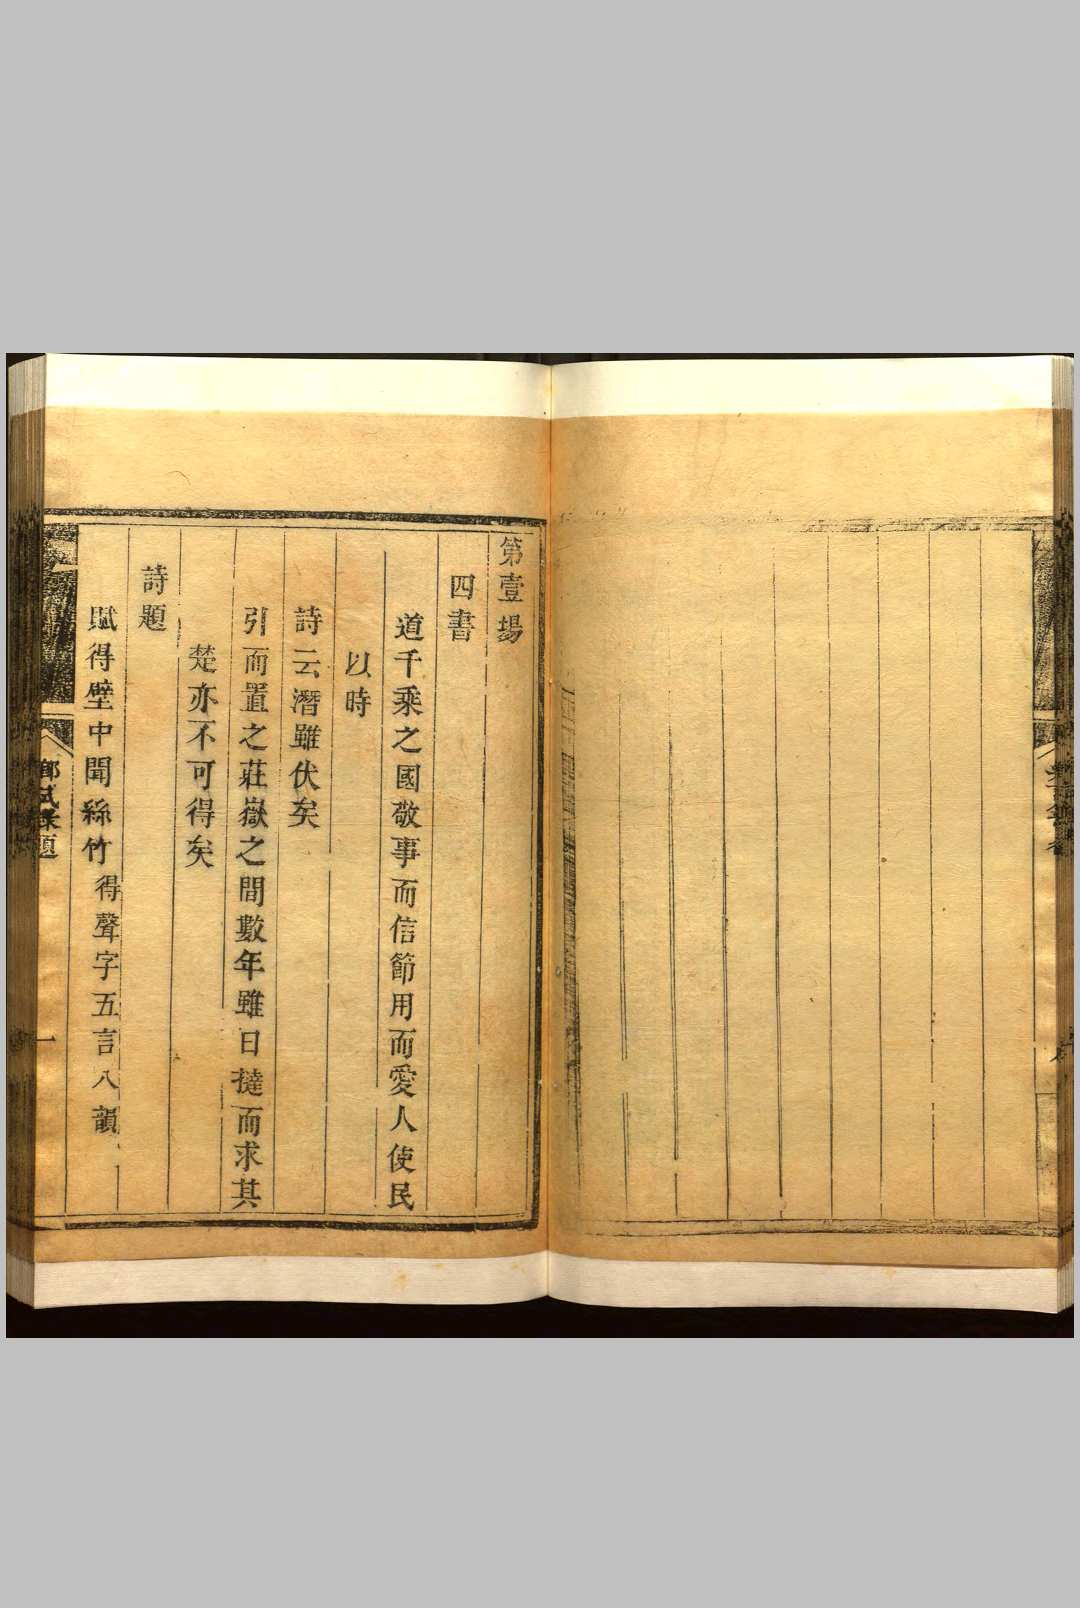 第壹場
四書
道千乘之國敬事而信節用而愛人使民
以時
詩云潛雖伏矣
引而置之莊嶽之間數年雖日撻而求其
楚亦不可得矣
詩題
賦得壁中聞絲竹得聲字五言八韻
鄉試錄題
一